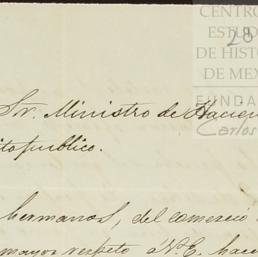 CENTRO
ESTUD
DE HISTO
DE MEX
28
FUNDA
Carlos
Sr. Ministro de Hacien
ito publico.
hermanos, del comercio
mayor respeto á V. E. hace